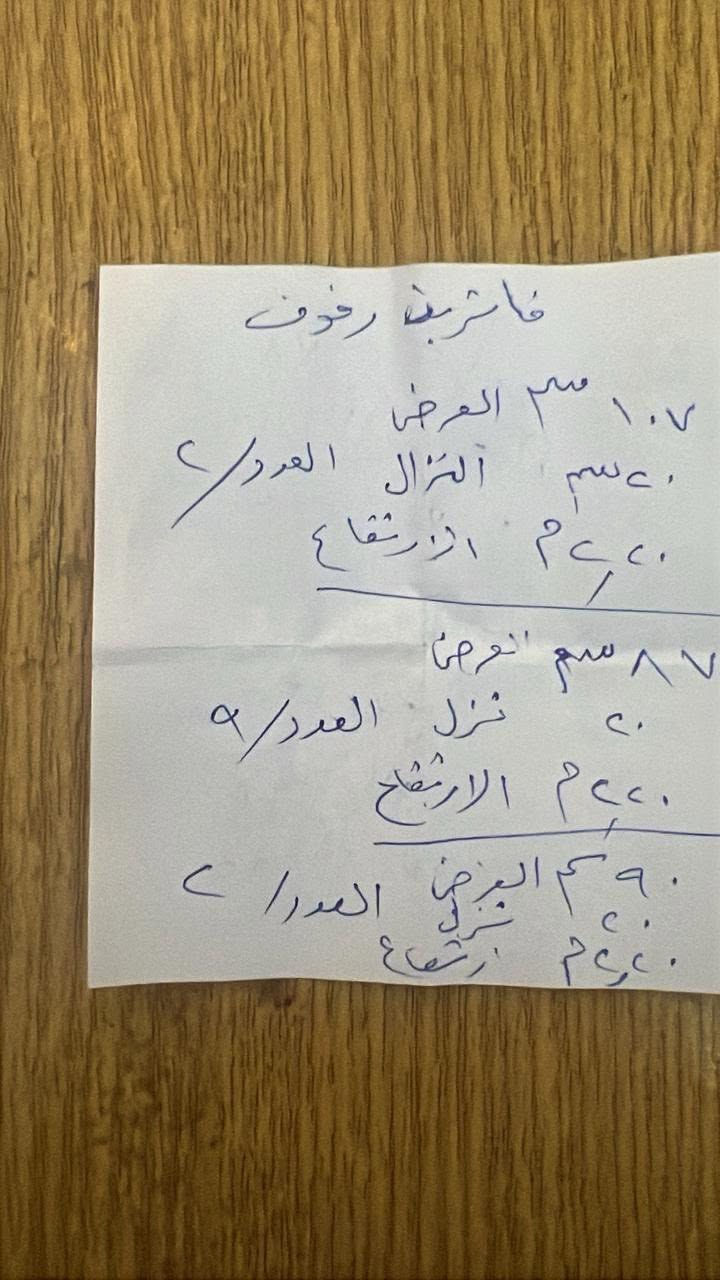 فاترينة رفوف
١٠٧ سم العرض
٢٠ سم النزال العدد/ ٢
٢,٢٠ م الارتفاع
٨٧ سم العرض
٢٠ نزل العدد/ ٩
٢,٢٠ م الارتفاع
٩٠ سم العرض العدد/ ٢
٢٠ نزل
٢,٢٠ م ارتفاع